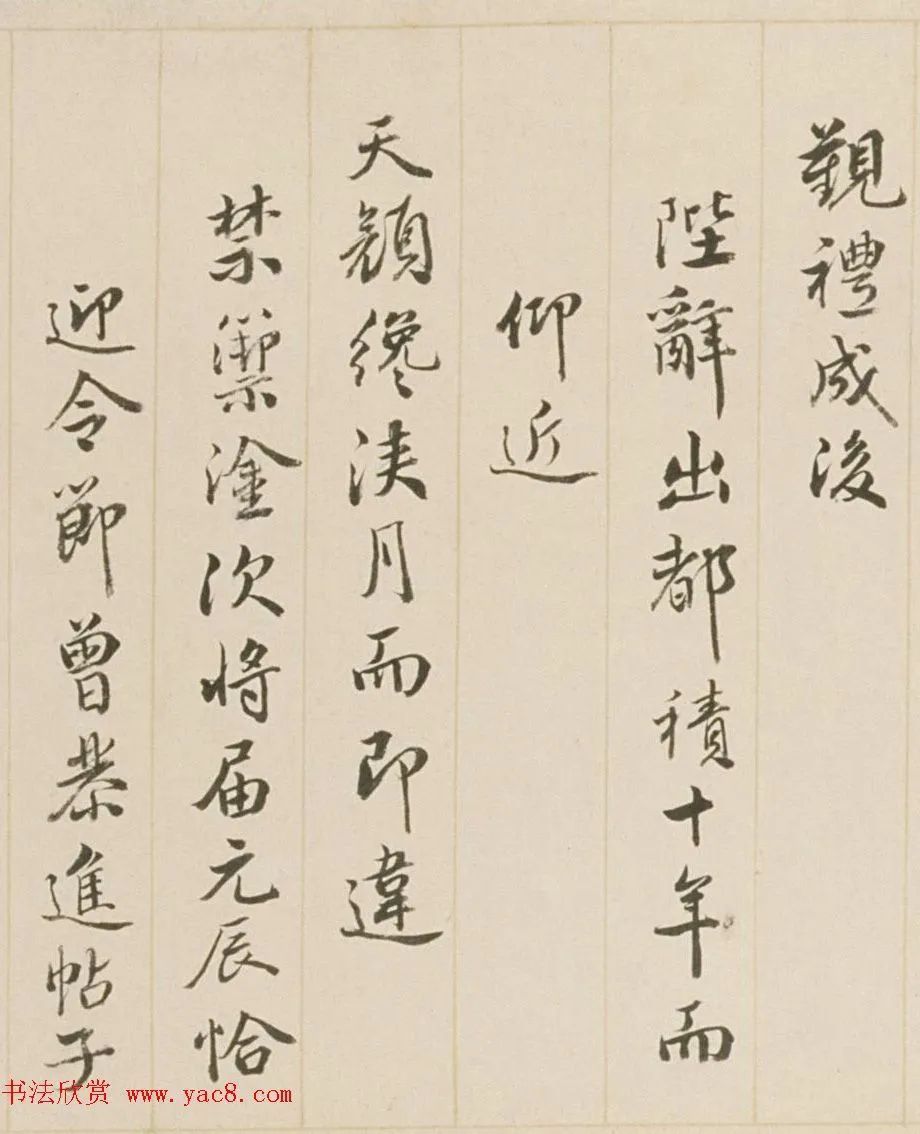 覲禮成後
陛辭出都積十年而
仰近
天顏纔浹月而即違
禁籞塗次將届元辰恰
迎令節曾恭進帖子
书法欣赏 www.yac8.com